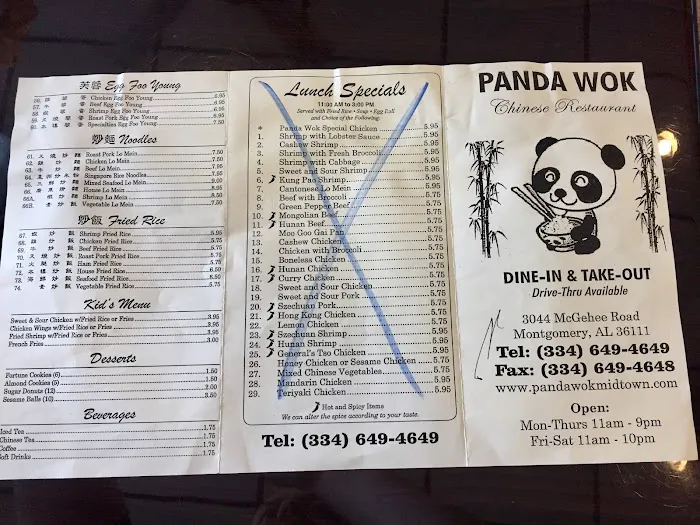 芙蓉 Egg Foo Young
Chicken Egg Foo Young 6.95
Beef Egg Foo Young 6.95
Shrimp Egg Foo Young
Roast Pork Egg Foo Young
Specialties Egg Foo Young 7.50
炒麵 Noodles
61. Roast Pork Lo Mein 7.50
62. Chicken Lo Mein
63. Beef Lo Mein
64. Singapore Rice Noodles
65. Mixed Seafood Lo Mein
66. House Lo Mein
66A. Shrimp Lo Mein
66B. Vegetable Lo Mein 7.50
炒飯 Fried Rice
67. 蝦 炒 飯 Shrimp Fried Rice 5.95
68. 雞 炒 飯 Chicken Fried Rice 5.95
69. 牛 炒 飯 Beef Fried Rice 5.95
70. 叉 燒 炒 飯 Roast Pork Fried Rice 5.95
71. 火 腿 炒 飯 Ham Fried Rice 5.95
72. 本 樓 炒 飯 House Fried Rice 6.50
73. 海 鮮 炒 飯 Seafood Fried Rice 8.50
74. 素 炒 飯 Vegetable Fried Rice 5.95
Kid's Menu
Sweet & Sour Chicken w/Fried Rice or Fries 3.95
Chicken Wings w/Fried Rice or Fries 3.95
Fried Shrimp w/Fried Rice or Fries 3.95
French Fries 3.00
Desserts
Fortune Cookies (6) 1.50
Almond Cookies (5) 1.50
Sugar Donuts (12) 2.50
Sesame Balls (10) 3.50
Beverages
Iced Tea 1.75
Chinese Tea 1.75
Coffee 1.75
Soft Drinks 1.75
Lunch Specials
11:00 AM to 3:00 PM
Served with Fried Rice • Soup • Egg Roll
and Choice of the Following:
* Panda Wok Special Chicken 5.95
1. Shrimp with Lobster Sauce 5.95
2. Cashew Shrimp 5.95
3. Shrimp with Fresh Broccoli 5.95
4. Shrimp with Cabbage 5.95
5. Sweet and Sour Shrimp 5.95
6. Kung Pao Shrimp 5.95
7. Cantonese Lo Mein 5.75
8. Beef with Broccoli 5.75
9. Green Pepper Beef 5.75
10. Mongolian Beef 5.75
11. Hunan Beef 5.75
12. Moo Goo Gai Pan 5.75
13. Cashew Chicken 5.75
14. Chicken with Broccoli 5.75
15. Boneless Chicken 5.75
16. Hunan Chicken 5.75
17. Curry Chicken 5.75
18. Sweet and Sour Chicken 5.75
19. Sweet and Sour Pork 5.75
20. Szechuan Pork 5.75
21. Hong Kong Chicken 5.75
22. Lemon Chicken 5.75
23. Szechuan Shrimp 5.75
24. Hunan Shrimp 5.75
25. General's Tso Chicken 5.75
26. Honey Chicken or Sesame Chicken 5.75
27. Mixed Chinese Vegetables 5.75
28. Mandarin Chicken 5.95
29. Teriyaki Chicken 5.95
Hot and Spicy Items
We can alter the spice according to your taste.
Tel: (334) 649-4649
PANDA WOK
Chinese Restaurant
DINE-IN & TAKE-OUT
Drive-Thru Available
3044 McGehee Road
Montgomery, AL 36111
Tel: (334) 649-4649
Fax: (334) 649-4648
www.pandawokmidtown.com
Open:
Mon-Thurs 11am - 9pm
Fri-Sat 11am - 10pm